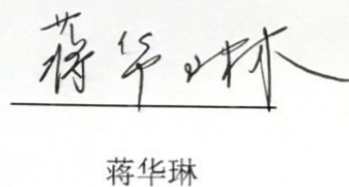 蒋华琳
蒋华琳